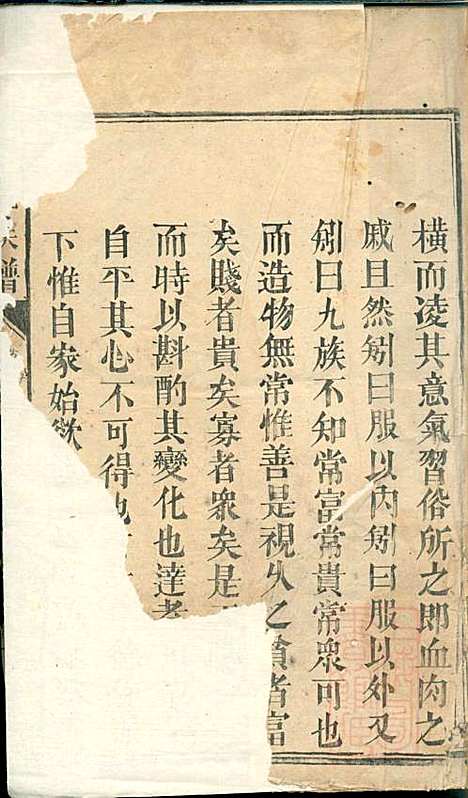 橫而凌其意氣習俗所之即血肉之
戚且然矧曰服以內矧曰服以外又
矧曰九族不知常富常貴常眾可也
而造物無常惟善是視久之貧者富
矣賤者貴矣寡者衆矣是
而時以斟酌其變化也達者
自平其心不可得也
下惟自家始欲
譜